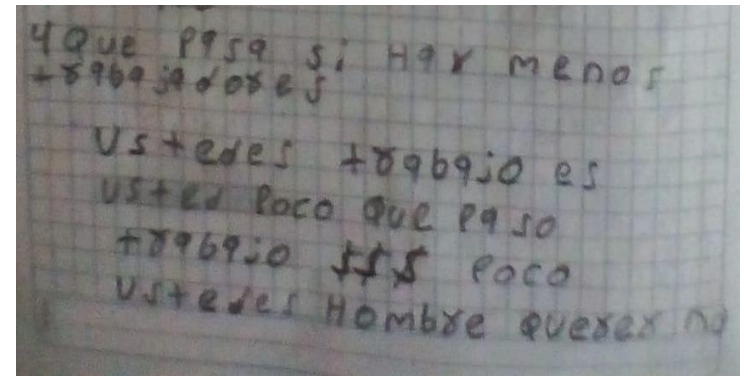 Y Que pasa si Hay menos
trabajadores
Ustedes trabajo es
usted Poco Que paso
trabajo $$$ poco
ustedes Hombre querer no